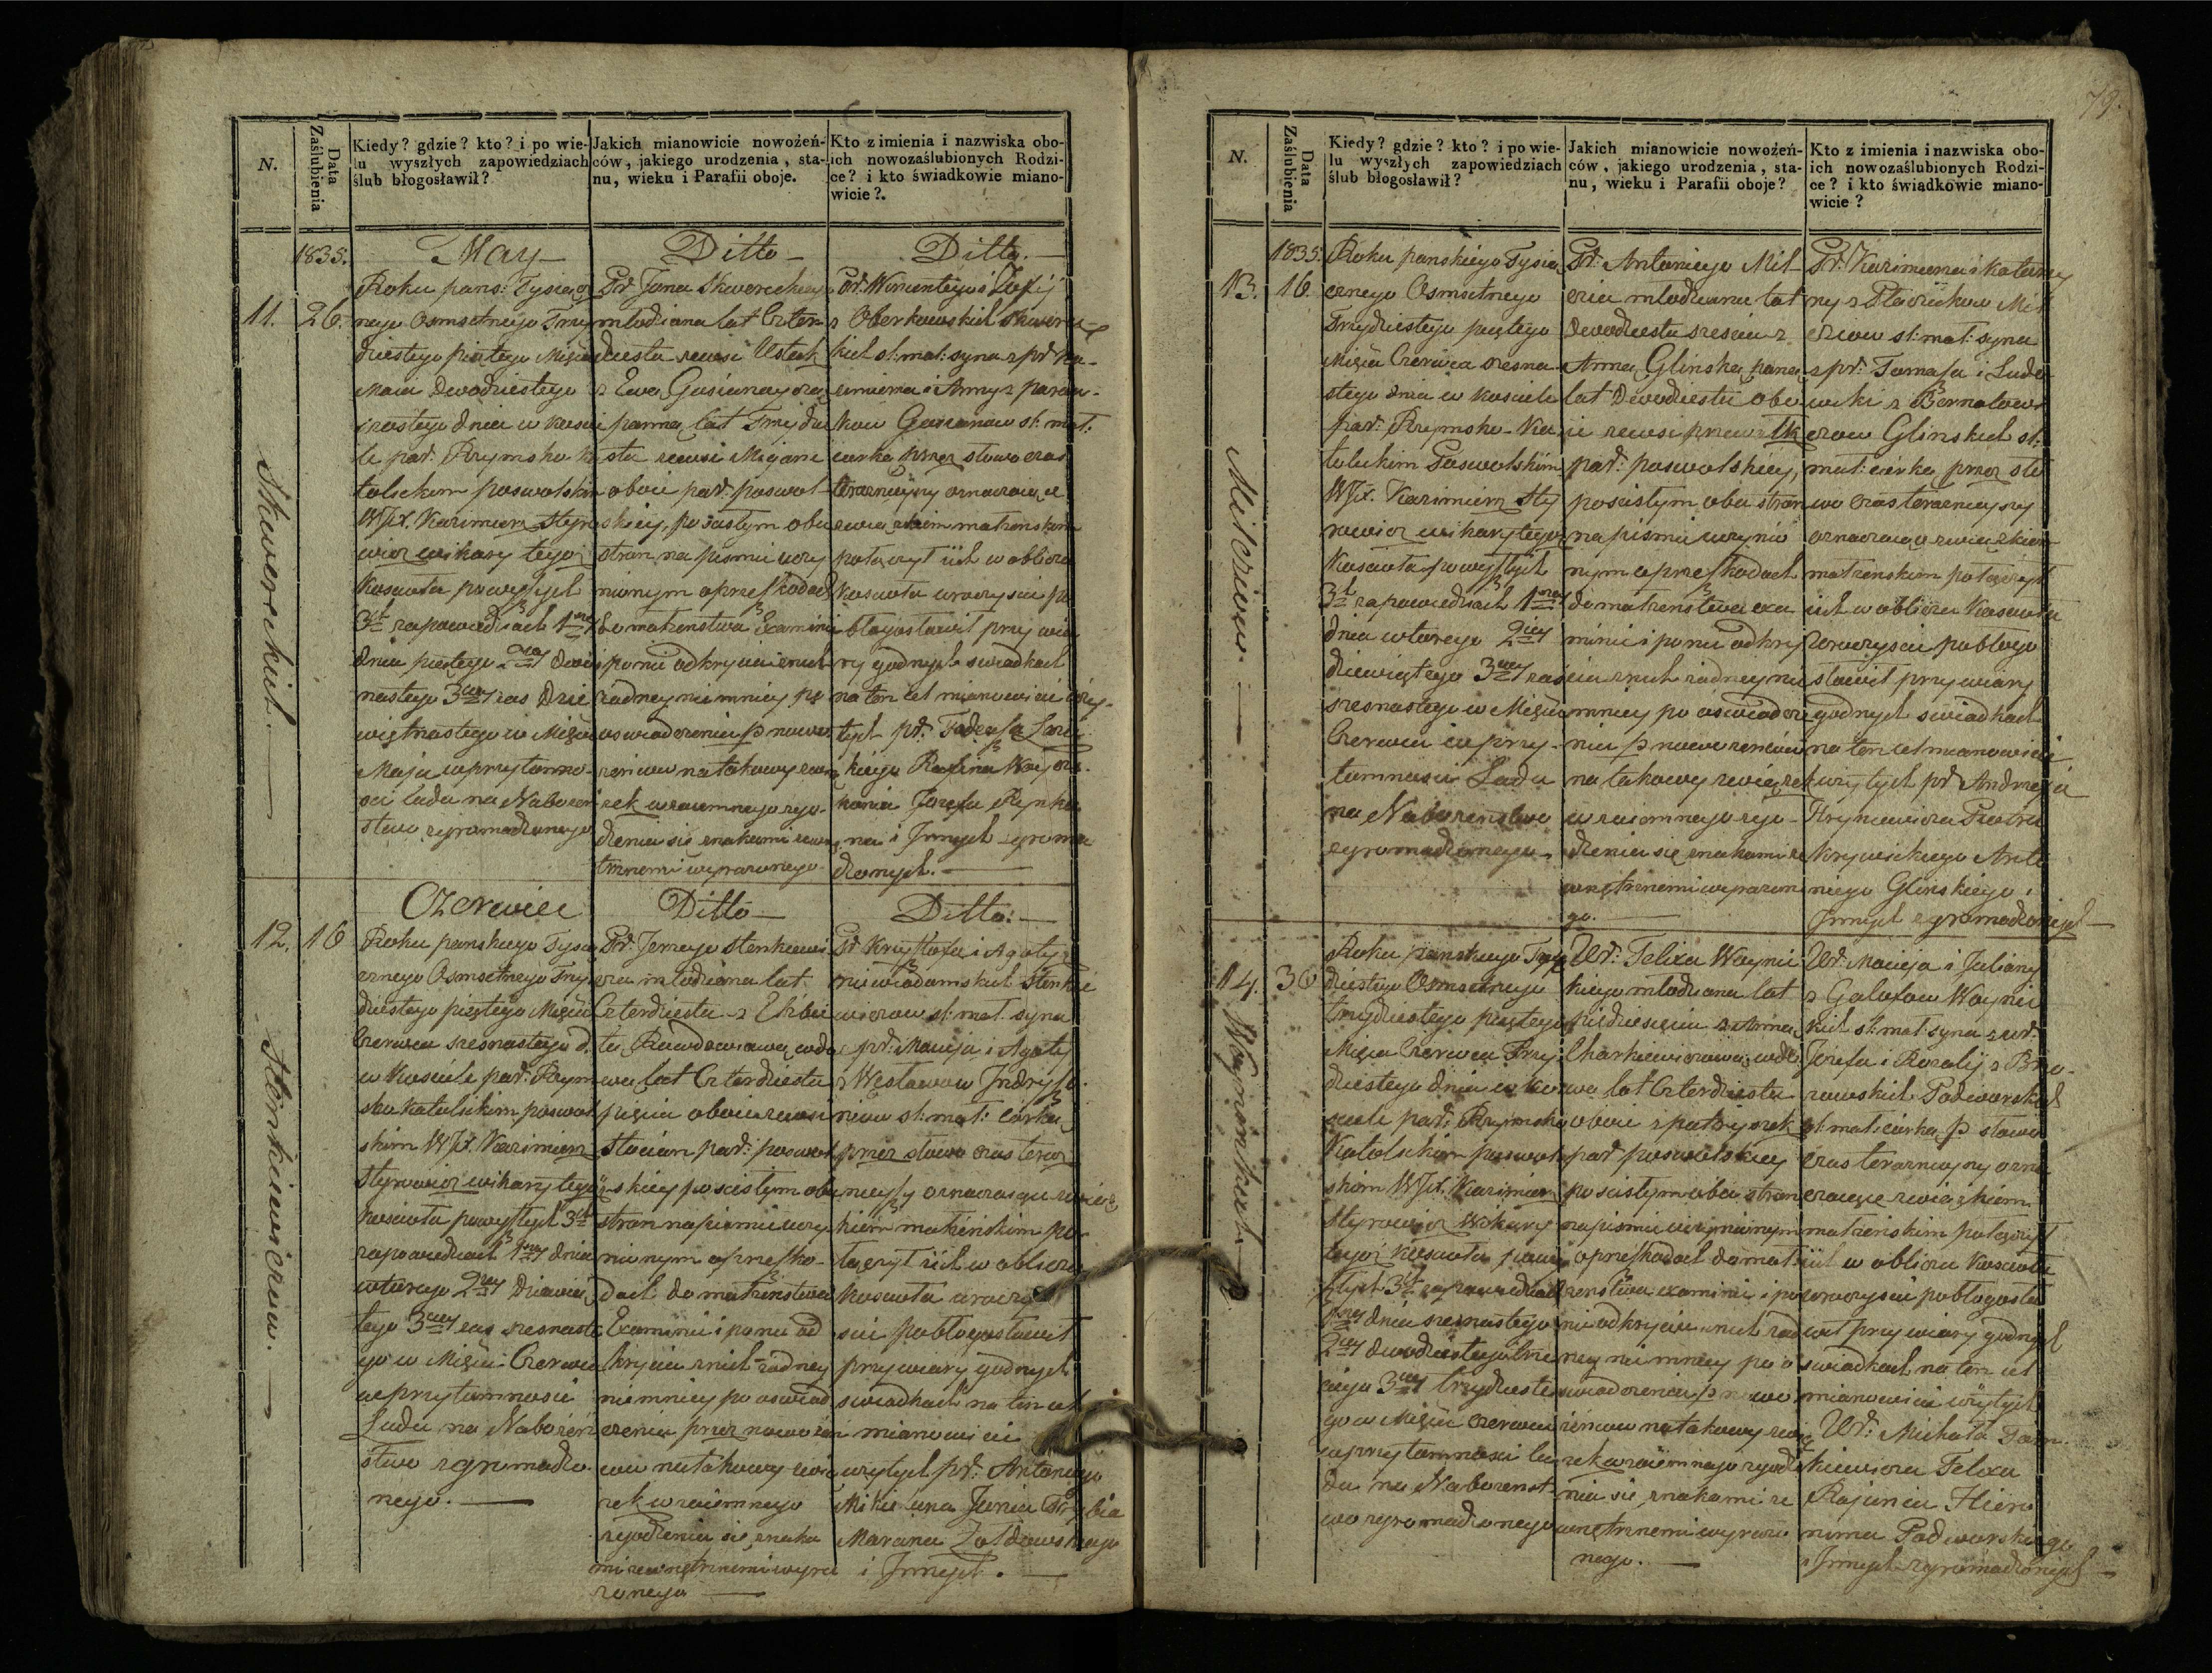 79.
N.
Data Zaślubienia
Kiedy? gdzie? kto? i po wie-
lu wyszłych zapowiedziach
ślub błogosławił?
Jakich mianowicie nowożeń-
ców, jakiego urodzenia, sta-
nu, wieku i Parafii oboje.
Kto z imienia i nazwiska obo-
ich nowozaślubionych Rodzi-
ce? i kto świadkowie miano-
wicie?.
1835.
11.
26.
Skworeckich.
May
Roku pans: Tysiącz
nego Osmsetnego Trzy
dziestego piątego Mięsia
Maia Dwodziestego
szostego dnia w kosci
le par: Rzymsko K
tolickim poswolskim
WJX. Kazimierz Styr
wicz wikary tegoż
Koscioła po wyszłych
3ch zapowiedziach 1ney
dnia piętego 2giey dwu
nastego 3ciey zas dzie
więtnastego w Mięsiu
Maju w przytomno-
sci ludu na Nabożeń
stwo zgromadzonego
Ditto
Pr Jana Skworeckiego
młodziana lat Czter
dziestu zewsi Ustuk
z Ewą Gasianayczą
panną lat Trzydzie
stu zewsi Migani
oboie par: poswol-
skiey, po scisłym obu
stron na pismie uczy
nionym o przeszkodach
do małżenstwa Examinie
i po nie odkryciu z nich
żadney nie mniey po
oswiadczeniu p nowo
żeńcow na takowy zwią
zek wzaiemnego zgo-
dzenia się znakami zewnę
trznemi wyrażonego
Ditto.
Pr. Wincentego i Zofij
z Oberkowskich Skworec
kich sł: mał: syna z pr Ka-
zimierza i Anny z
kow Gasianow sł: mał:
corką przez słowa czas
teraznieyszy oznaczaiące
związkiem małżenskim
połączył ich w obliczu
Koscioła uroczyscie po
błogosławił przy wia
ry godnych swiadkach
na ten cel mianowicie użytych
pr: Tadeusza
kiego
Jozefa
na i Innych zgroma
dzonych.
12.
16
Stenkiewiczow.
Czerwiec
Roku panskiego Tysią
cznego Osmsetnego Trzy
dziestego piętego Mięsia
Czerwca szesnastego d.
w Kosciele par: Rzym
sko katolickim poswol
skim WJX. Kazimierz
Styrowicz wikary tegoż
kosciołá po wyszłych 3ch
zapowiedziach 1ney dnia
wtorego 2giey Dziewią
tego 3ciey zas szesnaste
go w Mięsiu Czerwcu
w przytomnosci
Ludu na Nabożeń
stwo zgromadzo
nego.
Ditto
Pr. Jerzego Stenkiewi
cza młodziana lat
Czterdziestu z Elżbie
tą wdo
wą lat Czterdziestu
pięciu oboie zewsi
par: poswol
skiey po scisłym obu
stron na pismie uczy
nionym o przeszko-
dach do małżenstwa
Examinie i po nie od
kryciu z nich żadney
nie mniey po oswiad
czeniu przez nowożeń
cow na takowy zwią
zek wzaiemnego
zgodzenia się znaka
mi zewnętrznemi wyra
żonego
Ditto.
Pr Krzysztofa i Agaty z
niewiadomskich Stenkie
wiczow sł: mał. syna
z pr: Macieja i Agaty
z Węsławow
sł: mał: corką
przez słowa czas teraz
nieyszy oznaczaiące związ
kiem małżeńskim po
łączył ich w obliczu
kosciołá uroczy
scie pobłogosławił
przy wiary godnych
swiadkach na ten cel
mianowicie
użytych pr. Antoniego
Mikielana
Marcina Zołdowskiego
i Innych.
N.
Data Zaślubienia
Kiedy? gdzie? kto? i po wie-
lu wyszłych zapowiedziach
ślub błogosławił?
Jakich mianowicie nowożeń-
ców, jakiego urodzenia, sta-
nu, wieku i Parafii oboje?
Kto z imienia i nazwiska obo-
ich nowozaślubionych Rodzi-
ce? i kto świadkowie miano-
wicie?
1835.
13.
16.
Milcziow.
Roku panskiego Tysią
cznego Osmsetnego
Trzydziestego piętego
Mięsia Czerwca szesna
stego dnia w kosciele
par: Rzymsko-Ka
tolickim Poswolskim
WJX. Kazimierz Sty
rowicz wikary tegoż
Kosciołá po wyszłych
3ch zapowiedziach 1ney
dnia wtorego 2giey
dziewiątego 3ciey zas
szesnastego w Mięsiu
Czerwcu w przy-
tomnosci Ludu
na Nabożenstwo
zgromadzonego
Pr. Antoniego Mil-
cza młodziana lat
Dwodziestu szesciu z
Anną Glinską panną
lat Dwodziestu obo
ie zewsi
par: poswolskiey,
po scisłym obu stron
na pismie uczynio
nym o przeszkodach
do małżenstwa exa
minie i po nie odkry
ciu z nich żadney nie
mniey po oswiadcze
niu p nowożeńcow
na takowy związek
wzaiemnego zgo-
dzenia się znakami ze
wnętrznemi wyrażone
go.
Pr. Kazimierza i Katarzy
ny z Mil
cziow sł: mał: syna
z pr: Tomasza i Ludo
wiki z Bernatowi
czow Glinskich sł:
mał: corką przez sło
wo czas teraznieyszy
oznaczaiące związkiem
małżenskim połączył
ich w obliczu Kosciołá
uroczyscie pobłogo
sławił przy wiary
godnych swiadkach
na ten cel mianowicie
użytych pr Andrzeja
Hryniewicza Piotra
Krzywickiego Anto
niego Glinskiego i
Innych zgromadzonych
14.
30
Woynickich
Roku panskiego Trzy
dziestego Osmsetnego
trzydziestego piętego
Mięsia Czerwca Trzy
dziestego dnia w ko
sciele par: Rzymsko
Katolickim poswol
skim WJX. Kazimierz
Styrowicz Wikary
tegoż kosciołá po wy
szłych 3ch zapowiedziach
1ney dnia szesnastego
2giey dwodziestego trze
ciego 3ciey trzydzieste
go w Mięsiu czerwcu
w przytomnosci lu
du na Nabożenst
wo zgromadzonego
Ur: Felixa Woynic
kiego młodziana lat
pięćdziesięciu z Anną
Charkiewiczową wdo
wą lat Czterdziestu
oboie z
par poswolskiey
po scisłym obu stron
na pismie uczynionym
o przeszkodach do mał
żenstwa examinie i po
nie odkryciu z nich żad
ney nie mniey po o
swiadczeniu p nowo
żeńcow na takowy zwią
zek wzaiemnego zgodze
nia się znakami ze
wnętrznemi wyrażo
nego.
Ur: Macieja i Juliany
z Woynic
kich sł: mał: syna z ur:
Jozefa i Rozalij z
Podworskich
sł: mał: corką p słowa
czas teraznieyszy ozna
czaiące związkiem
małżenskim połączył
ich w obliczu Kosciołá
uroczyscie pobłogosła
wił przy wiary godnych
swiadkach na ten cel
mianowicie użytych
Ur: Michała
kiewicza Felixa
Hiero
nima Podworskiego
i Innych zgromadzonych